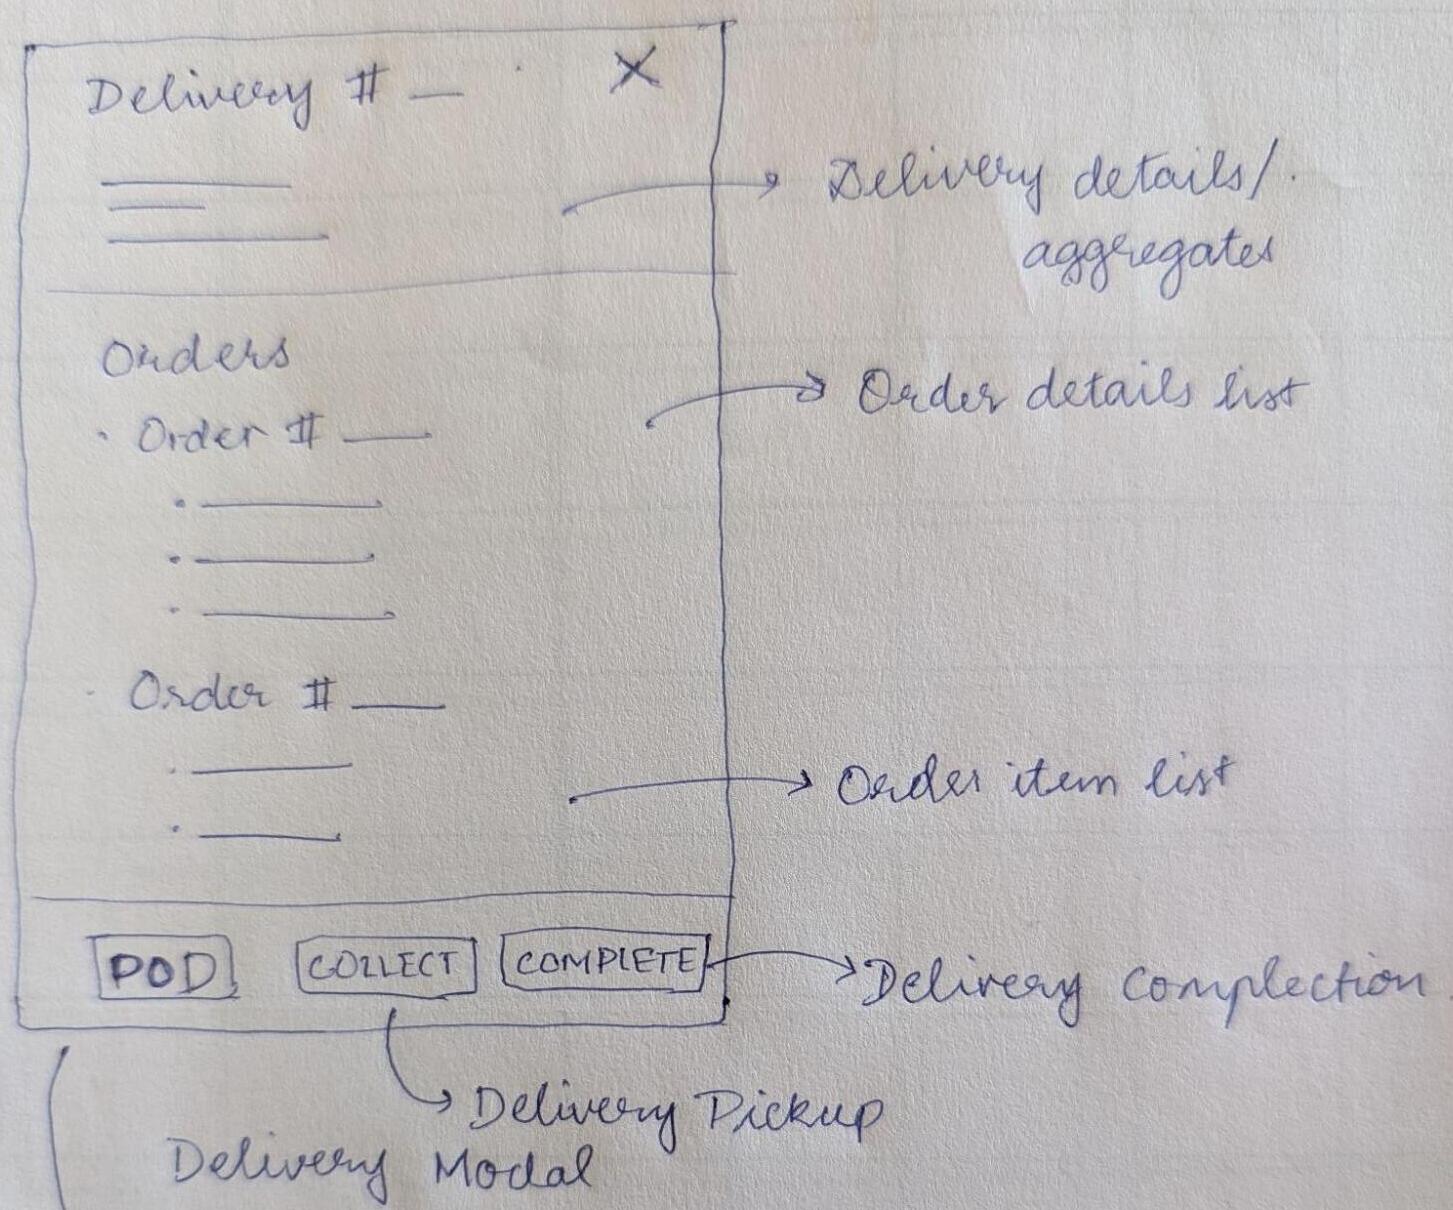 Delivery # _ X
Delivery details/
aggregates
Orders
Order details list
• Order # __
• Order # __
Order item list
POD COLLECT COMPLETE
Delivery Complection
Delivery Pickup
Delivery Modal